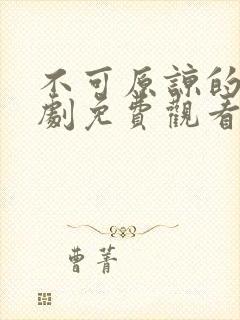 不可原諒的
劇免費觀看
曹菁